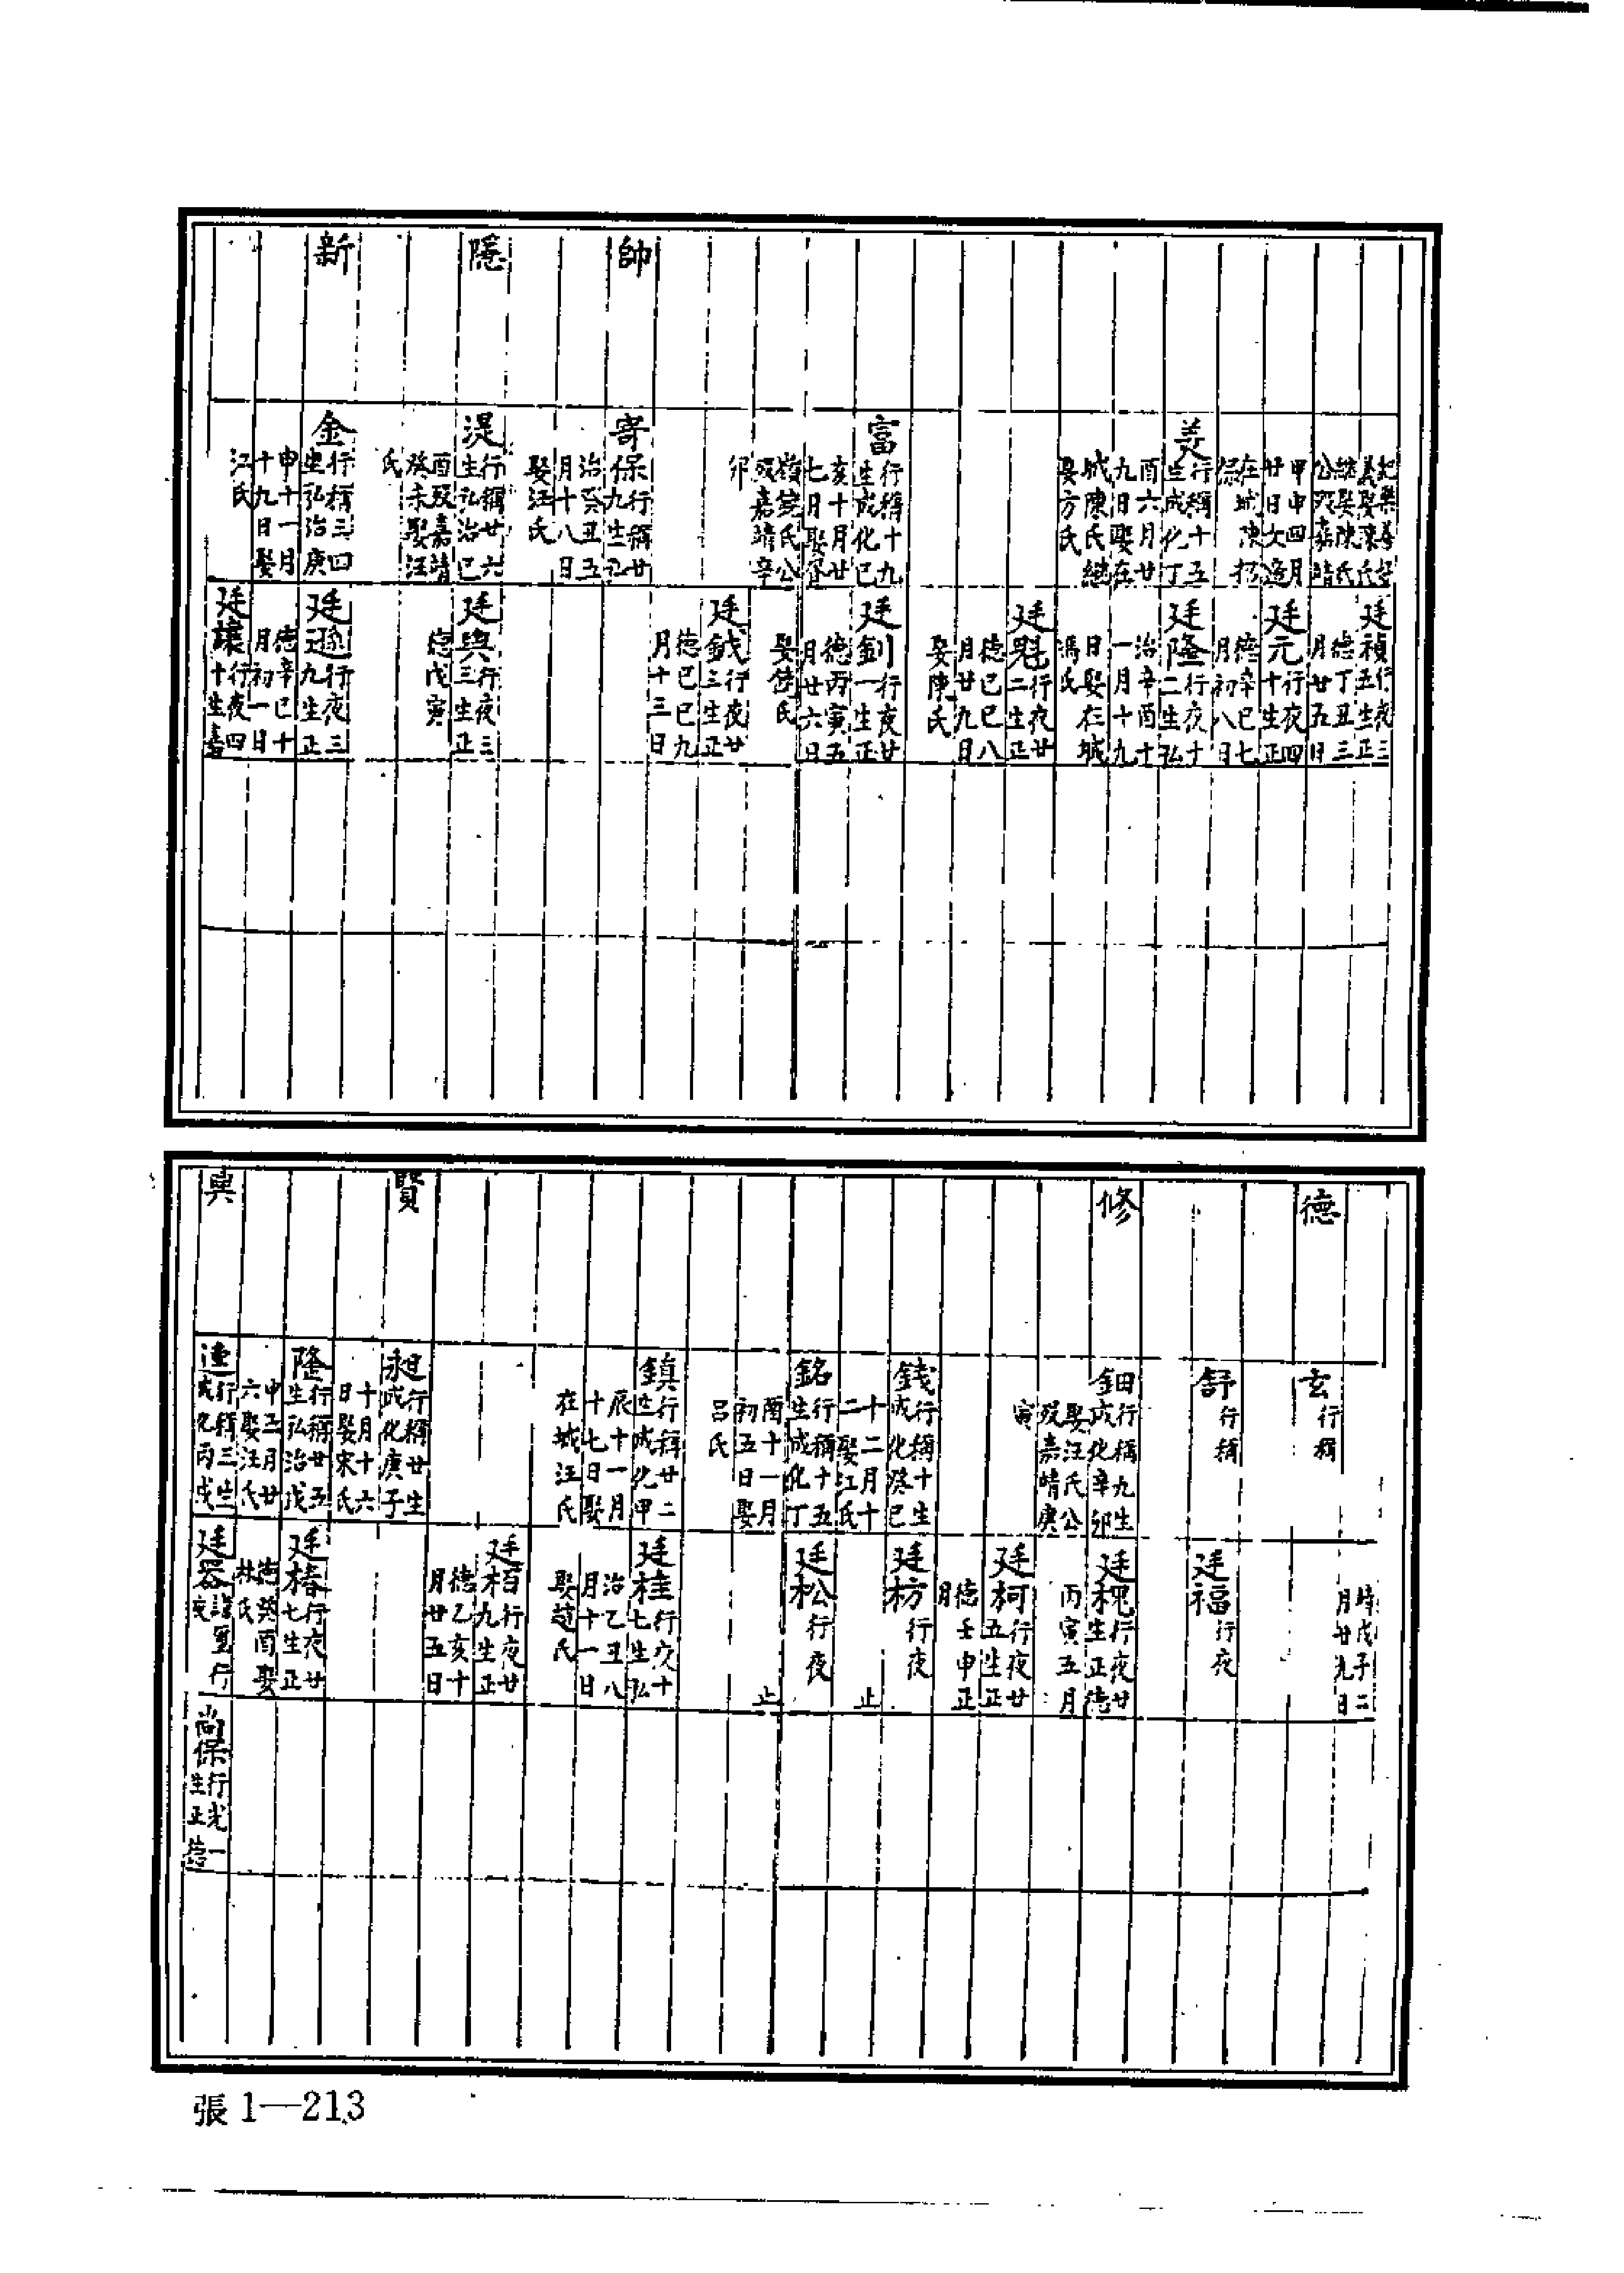 帥
隱
新
美
行稱十五
生成化丁
酉六月廿
九日娶在
城陳氏繼
娶方氏
富
行稱十九
生成化己
亥十月廿
七月娶
嶺饒氏公
歿嘉靖辛
卯
寄保
行稱廿
九生弘
治癸丑五
月十八日
娶汪氏
湜
行稱廿六
生弘治己
酉歿嘉靖
癸未娶汪
氏
金
行稱三四
生弘治庚
申十一月
十九日娶
江氏
廷禎
行夜三
五生正
德丁丑三
月廿五日
廷元
行夜四
十生正
德辛巳七
月初八日
廷隆
行夜十
二生弘
治辛酉十
一月十九
日娶在城
馮氏
廷魁
行夜廿
二生正
德己巳八
月廿九日
娶陳氏
廷釗
行夜廿
一生正
德丙寅五
月廿六日
廷鉞
行夜廿
三生正
德己巳九
月十三日
廷與
行夜三
三生正
德戊寅
廷遜
行夜三
九生正
德辛巳十
月初一日
廷讓
行夜四
十生嘉
德
修
賢
輿
玄
行稱
舒
行稱
鈿
行稱九生
成化辛卯
娶汪氏公
歿嘉靖庚
寅
錢
行稱十生
成化癸巳
十二月十
二娶江氏
銘
行稱十五
生成化丁
酉十一月
初五日娶
呂氏
鎮
行稱廿二
生成化甲
辰十一月
十七日娶
在城汪氏
昶
行稱廿生
成化庚子
十月十六
日娶宋氏
隆
行稱廿五
生弘治戊
申三月廿
六娶汪氏
達
行稱三生
成化丙戌
靖戊子二
月廿九日
廷福
行夜
廷槐
行夜廿
生正德
丙寅五月
廷柯
行夜廿
五生正
德壬申正
月
廷枋
行夜
止
廷松
行夜
止
廷桂
行夜十
七生弘
治乙丑八
月十一日
娶趙氏
廷栢
行夜廿
九生正
德乙亥十
月廿五日
廷椿
行夜廿
七生正
德癸酉娶
林氏
尚保
行光一
生正德
張1—213